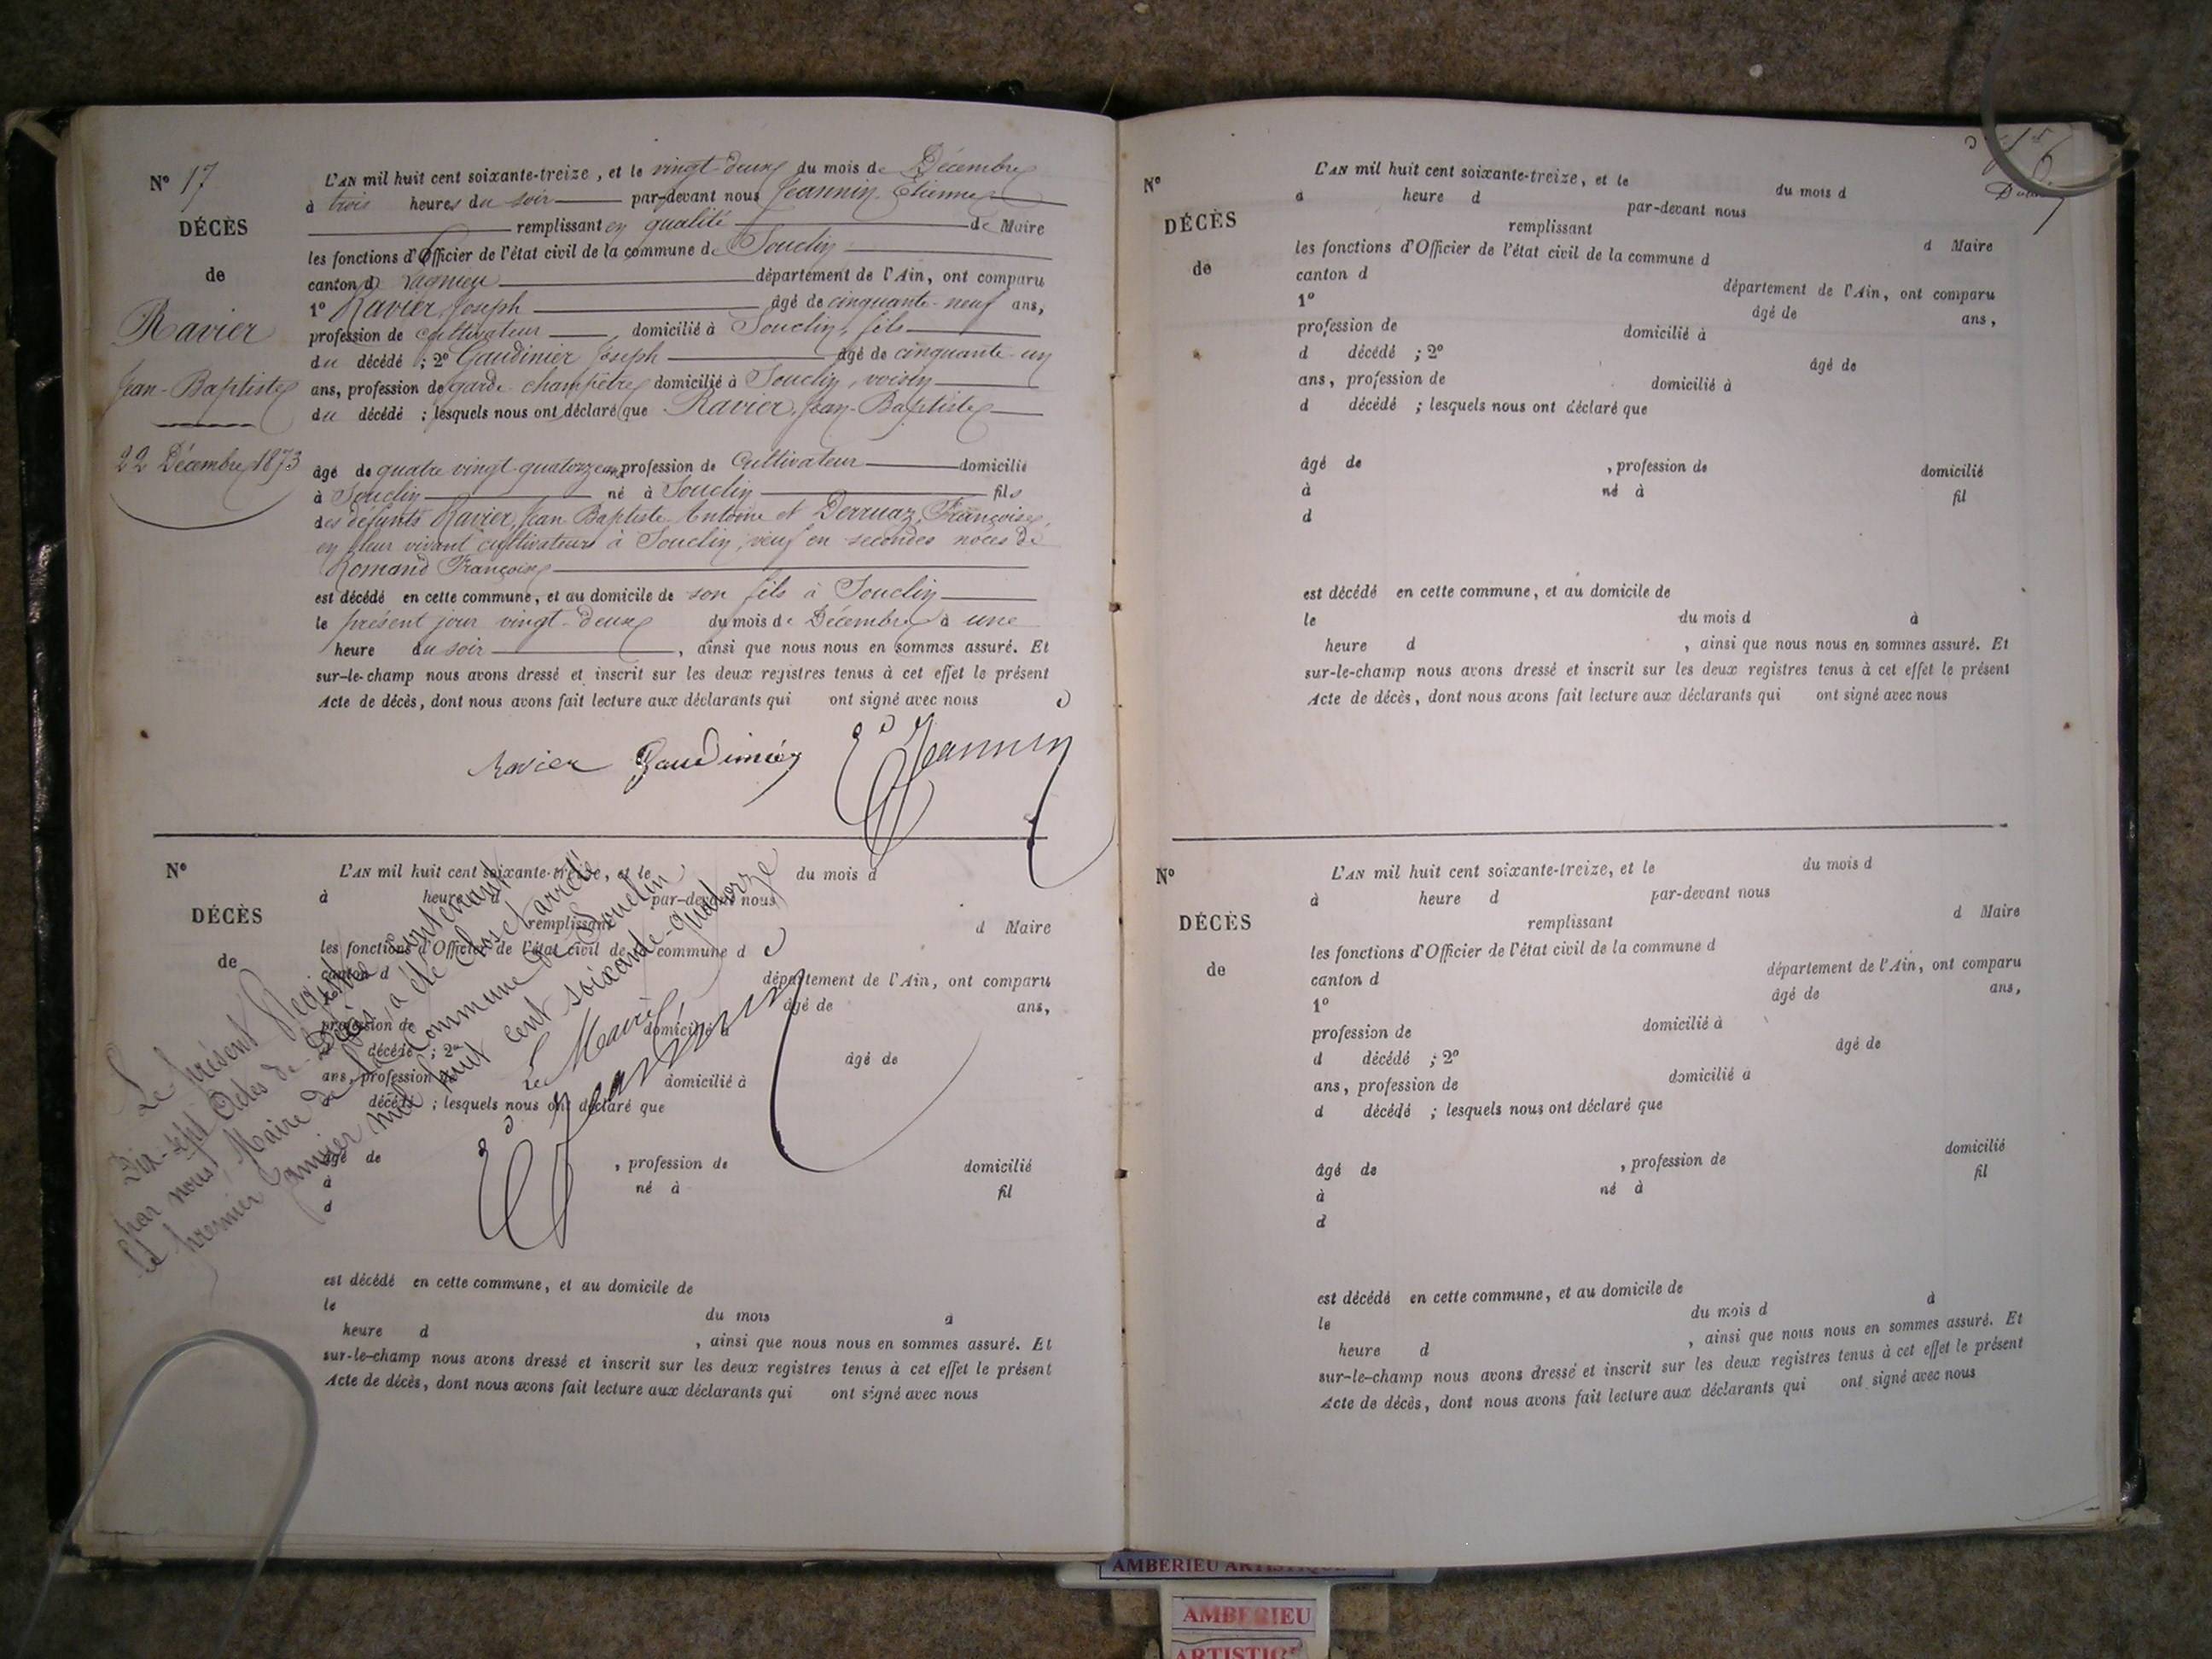 N° 17
DÉCÈS
de
Ravier
Jean-Baptiste
22 Décembre 1873
L'AN mil huit cent soixante-treize, et le vingt-deux du mois de Décembre
à trois heures du soir par-devant nous Jeannin Etienne
remplissant en qualité de Maire
les fonctions d'Officier de l'état civil de la commune de Souclin
canton de Lagnieu département de l'Ain, ont comparu
1° Ravier Joseph âgé de cinquante-neuf ans,
profession de cultivateur domicilié à Souclin, fils
du décédé ; 2° Gaudinier Joseph âgé de cinquante-un
ans, profession de garde-champêtre domicilié à Souclin, voisin
du décédé ; lesquels nous ont déclaré que Ravier, Jean-Baptiste
âgé de quatre-vingt-quatorze ans profession de Cultivateur domicilié
à Souclin né à Souclin fils
des défunts Ravier, Jean Baptiste Antoine et Derruaz, Françoise,
en leur vivant cultivateurs à Souclin, veuf en secondes noces de
Romand Françoise
est décédé en cette commune, et au domicile de son fils à Souclin
le présent jour vingt-deux du mois de Décembre à une
heure du soir , ainsi que nous nous en sommes assuré. Et
sur-le-champ nous avons dressé et inscrit sur les deux registres tenus à cet effet le présent
Acte de décès, dont nous avons fait lecture aux déclarants qui ont signé avec nous
Ravier Gaudinier Et Jeannin
N°
DÉCÈS
de
L'AN mil huit cent soixante-treize, et le du mois d
à heure d par-devant nous
remplissant d Maire
les fonctions d'Officier de l'état civil de la commune d
canton d département de l'Ain, ont comparu
âgé de ans,
profession de domicilié à
décédé ; 2° âgé de
ans, profession de domicilié à
décédé ; lesquels nous ont déclaré que
âgé de , profession de domicilié
à né à fil
d
est décédé en cette commune, et au domicile de
le du mois à
heure d , ainsi que nous nous en sommes assuré. Et
sur-le-champ nous avons dressé et inscrit sur les deux registres tenus à cet effet le présent
Acte de décès, dont nous avons fait lecture aux déclarants qui ont signé avec nous
Le présent Registre contenant
Dix-sept Actes de Décès a été clos et arrêté
par nous, Maire de la Commune de Souclin
le premier Janvier mil huit cent soixante-quatorze
Le Maire
Et Jeannin
N°
DÉCÈS
de
L'AN mil huit cent soixante-treize, et le du mois d
à heure d par-devant nous
remplissant d Maire
les fonctions d'Officier de l'état civil de la commune d
canton d département de l'Ain, ont comparu
1° âgé de ans,
profession de domicilié à
d décédé ; 2° âgé de
ans, profession de domicilié à
d décédé ; lesquels nous ont déclaré que
âgé de , profession de domicilié
à né à fil
d
est décédé en cette commune, et au domicile de
le du mois d à
heure d , ainsi que nous nous en sommes assuré. Et
sur-le-champ nous avons dressé et inscrit sur les deux registres tenus à cet effet le présent
Acte de décès, dont nous avons fait lecture aux déclarants qui ont signé avec nous
N°
DÉCÈS
de
L'AN mil huit cent soixante-treize, et le du mois d
à heure d par-devant nous
remplissant d Maire
les fonctions d'Officier de l'état civil de la commune d
canton d département de l'Ain, ont comparu
1° âgé de ans,
profession de domicilié à
d décédé ; 2° âgé de
ans, profession de domicilié à
d décédé ; lesquels nous ont déclaré que
âgé de , profession de domicilié
à né à fil
d
est décédé en cette commune, et au domicile de
le du mois d à
heure d , ainsi que nous nous en sommes assuré. Et
sur-le-champ nous avons dressé et inscrit sur les deux registres tenus à cet effet le présent
Acte de décès, dont nous avons fait lecture aux déclarants qui ont signé avec nous
AMBERIEU ARTISTIQUE
AMBERIEU
ARTISTIQUE